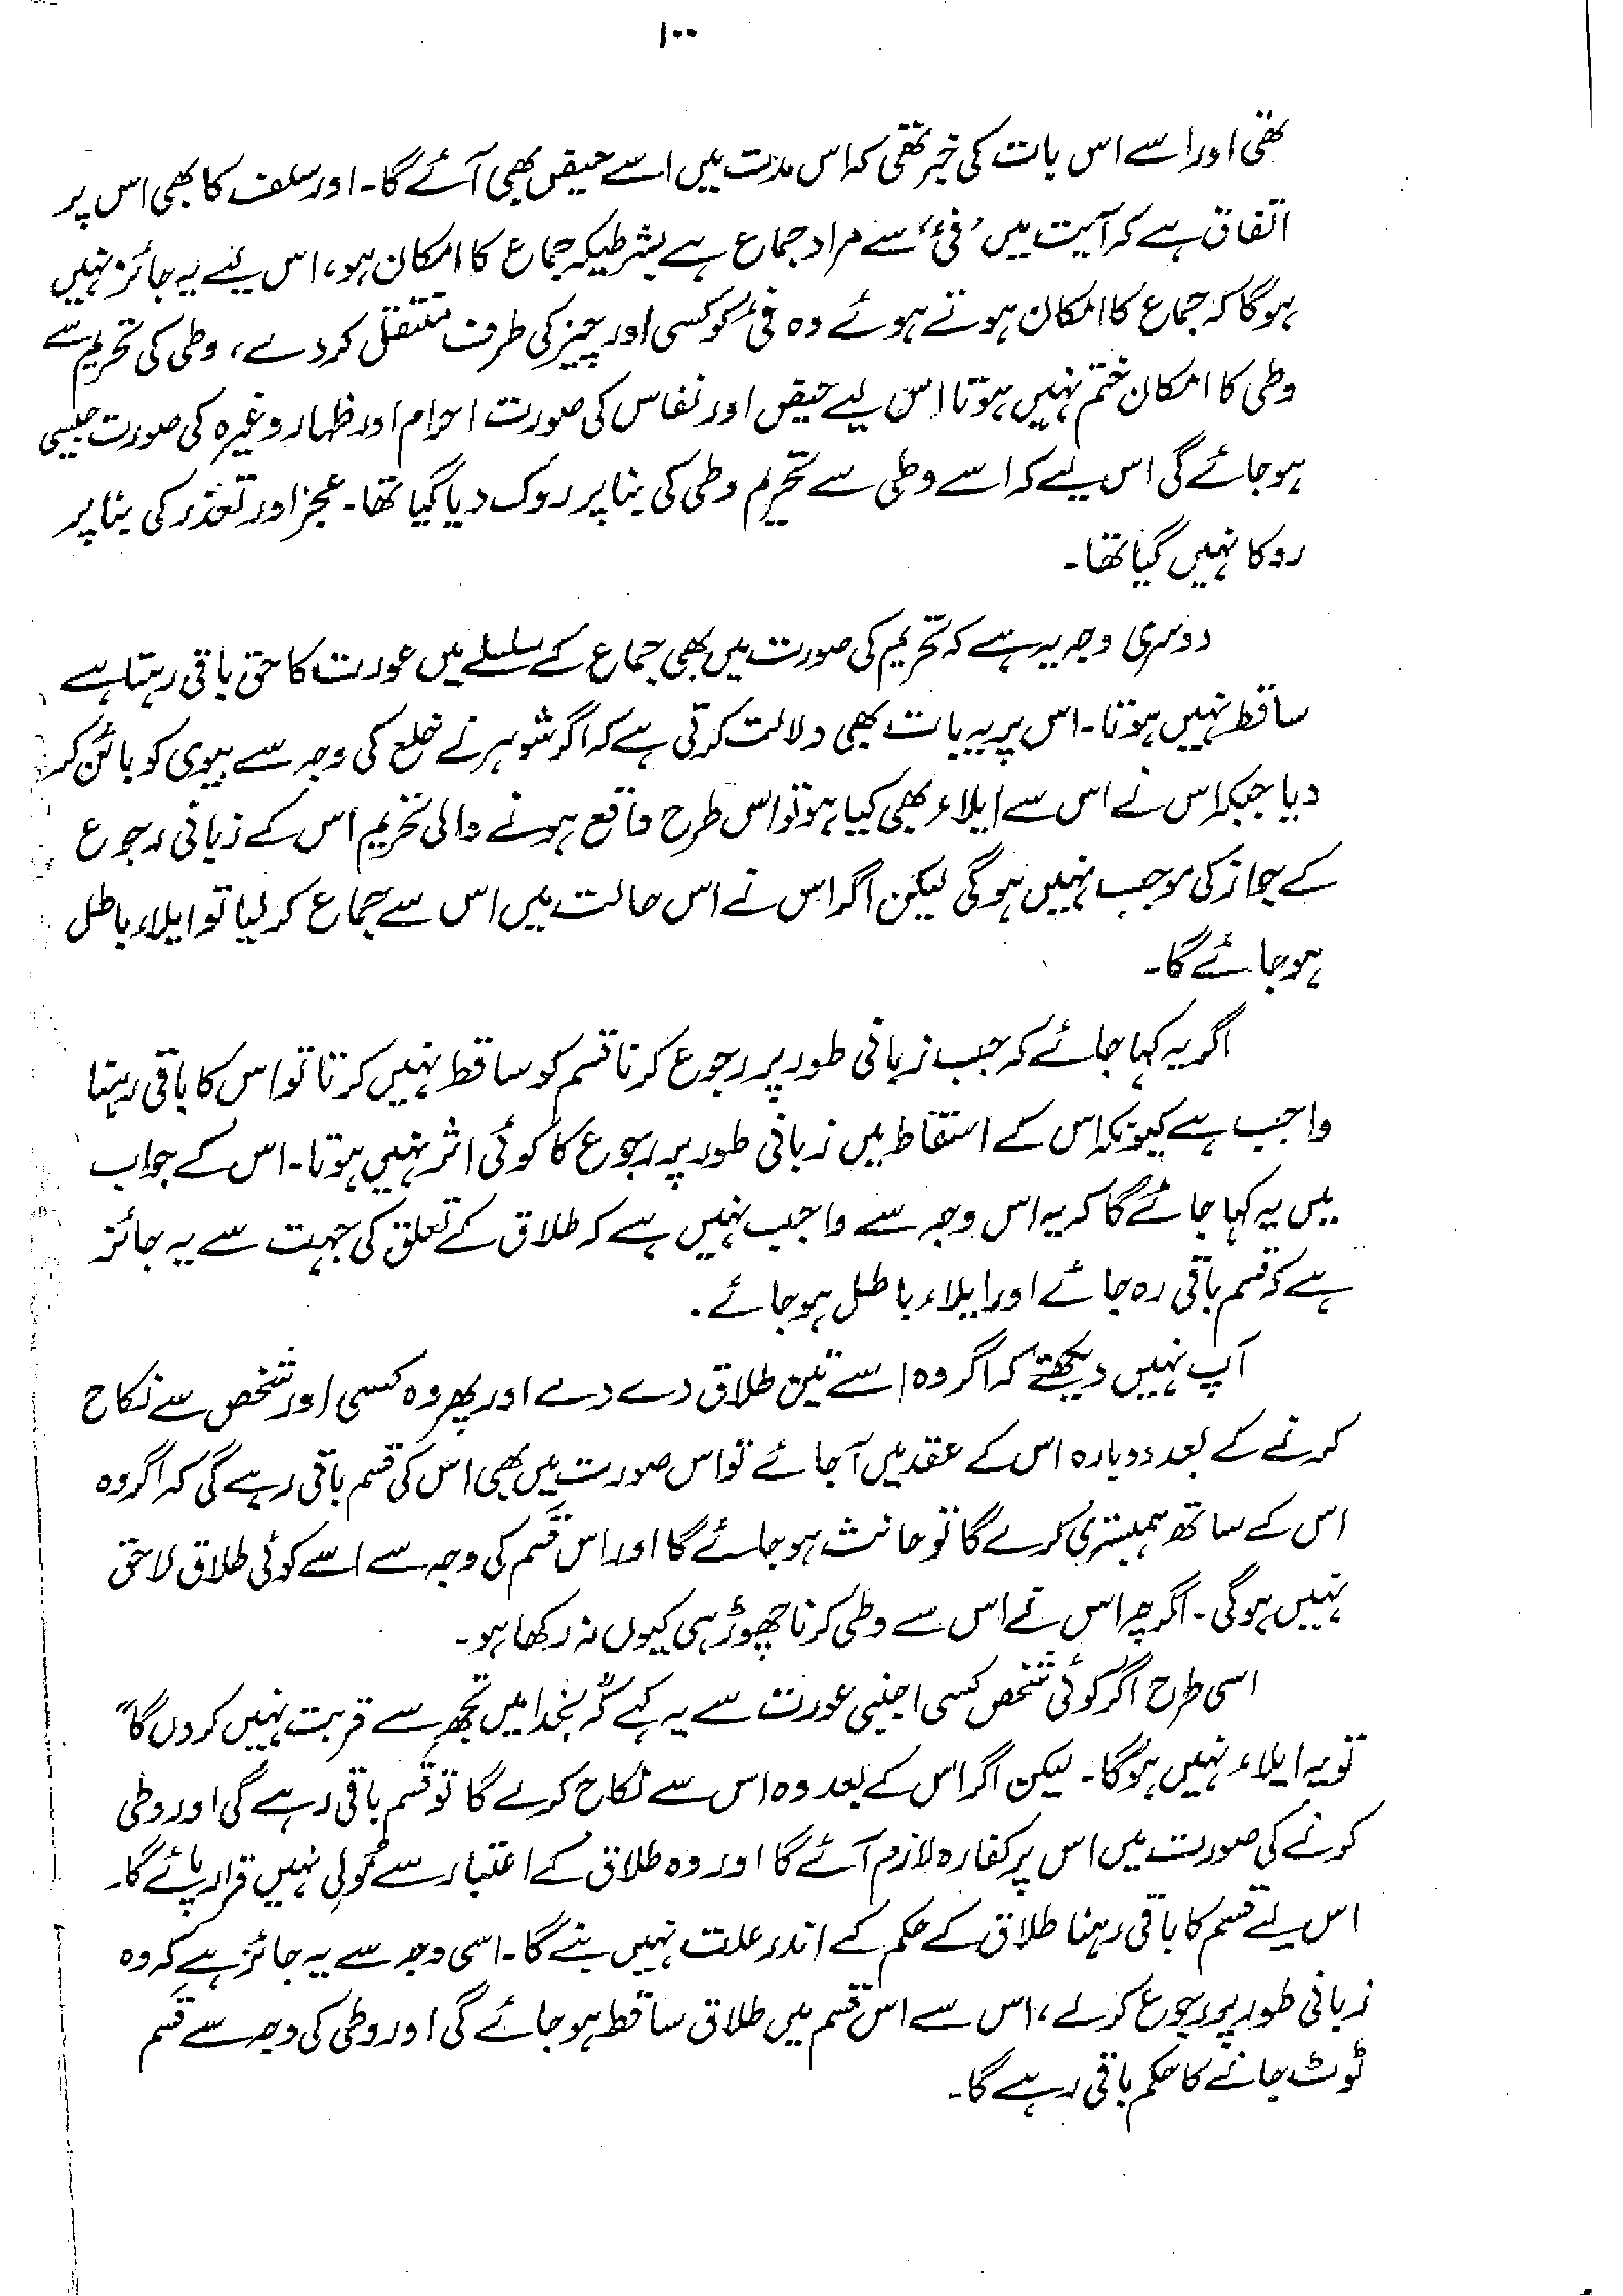 ۱۰۰
تھی اور اسے اس بات کی خبر تھی کہ اس مدت میں اسے حیض بھی آئے گا۔ اور سلف کا بھی اس پر
اتفاق ہے کہ آیت میں ’فیٔ‘ سے مراد جماع ہے بشرطیکہ جماع کا امکان ہو، اس لیے یہ جائز نہیں
ہوگا کہ جماع کا امکان ہوتے ہوئے وہ فیٔ کو کسی اور چیز کی طرف منتقل کر دے، وطی کی تحریم سے
وطی کا امکان ختم نہیں ہوتا اس لیے حیض اور نفاس کی صورت احرام اور ظہار وغیرہ کی صورت جیسی
ہو جائے گی اس لیے کہ اسے وطی سے تحریم وطی کی بنا پر روک دیا گیا تھا۔ عجز اور تعذر کی بنا پر
روکا نہیں گیا تھا۔
دوسری وجہ یہ ہے کہ تحریم کی صورت میں بھی جماع کے سلسلے میں عورت کا حق باقی رہتا ہے
ساقط نہیں ہوتا۔ اس پر یہ بات بھی دلالت کرتی ہے کہ اگر شوہر نے خلع کی وجہ سے بیوی کو بائن کر
دیا جبکہ اس نے اس سے ایلاء بھی کیا ہو تو اس طرح واقع ہونے والی تحریم اس کے زبانی رجوع
کے جواز کی موجب نہیں ہوگی لیکن اگر اس نے اس حالت میں اس سے جماع کر لیا تو ایلاء باطل
ہو جائے گا۔
اگر یہ کہا جائے کہ جب زبانی طور پر رجوع کرنا قسم کو ساقط نہیں کرتا تو اس کا باقی رہنا
واجب ہے کیونکہ اس کے اسقاط میں زبانی طور پر رجوع کا کوئی اثر نہیں ہوتا۔ اس کے جواب
میں یہ کہا جائے گا کہ یہ اس وجہ سے واجب نہیں ہے کہ طلاق کے تعلق کی جہت سے یہ جائز
ہے کہ قسم باقی رہ جائے اور ایلاء باطل ہو جائے۔
آپ نہیں دیکھتے کہ اگر وہ اسے تین طلاق دے دے اور پھر وہ کسی اور شخص سے نکاح
کرنے کے بعد دوبارہ اس کے عقد میں آجائے تو اس صورت میں بھی اس کی قسم باقی رہے گی کہ اگر وہ
اس کے ساتھ ہمبستری کرے گا تو حانث ہو جائے گا اور اس قسم کی وجہ سے اسے کوئی طلاق لاحق
نہیں ہوگی۔ اگرچہ اس نے اس سے وطی کرنا چھوڑ ہی کیوں نہ رکھا ہو۔
اسی طرح اگر کوئی شخص کسی اجنبی عورت سے یہ کہے کہ ”بخدا میں تجھ سے قربت نہیں کروں گا“
تو یہ ایلاء نہیں ہوگا۔ لیکن اگر اس کے بعد وہ اس سے نکاح کرے گا تو قسم باقی رہے گی اور وطی
کرنے کی صورت میں اس پر کفارہ لازم آئے گا اور وہ طلاق کے اعتبار سے مُولِی نہیں قرار پائے گا۔
اس لیے قسم کا باقی رہنا طلاق کے حکم کے اندر علت نہیں بنے گا۔ اسی وجہ سے یہ جائز ہے کہ وہ
زبانی طور پر رجوع کر لے، اس سے اس قسم میں طلاق ساقط ہو جائے گی اور وطی کی وجہ سے قسم
ٹوٹ جانے کا حکم باقی رہے گا۔